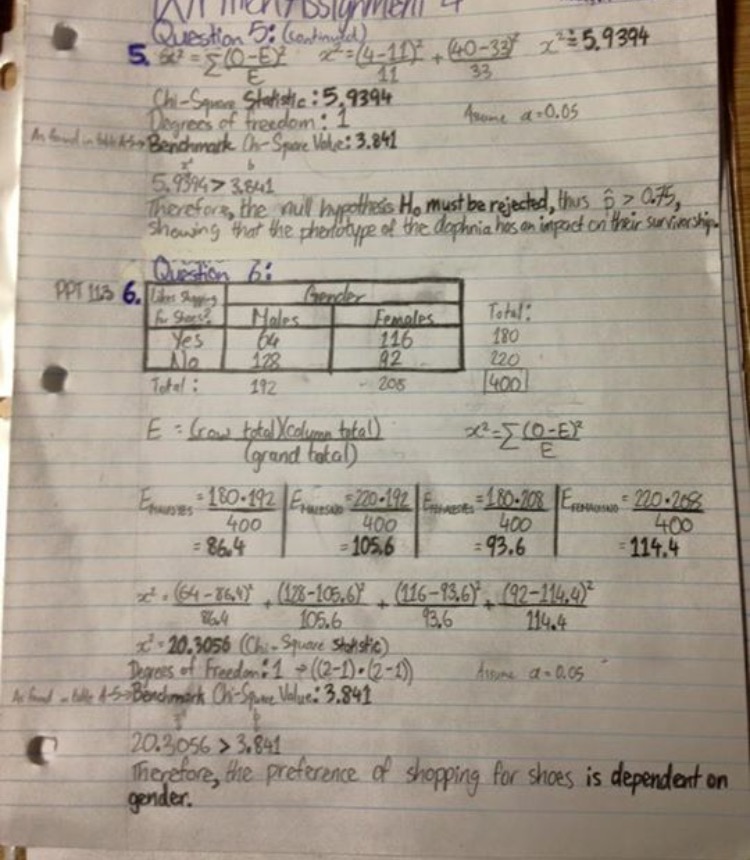 Written Assignment 4
Question 5: (continued)
5. x² = ∑(O-E)²/E x² = (4-11)²/11 + (40-33)²/33 x² = 5.9394
Chi-Square Statistic: 5.9394
Degrees of freedom: 1 Assume α=0.05
As found in table A-5→ Benchmark Chi-Square Value: 3.841
x² b
5.9394 > 3.841
Therefore, the null hypothesis H₀ must be rejected, thus p̂ > 0.75,
showing that the phenotype of the daphnia has an impact on their survivorship.
Question 6:
PPT 11.3 6. Likes Shopping Gender
for Shoes? Males Females Total:
Yes 64 116 180
No 128 92 220
Total: 192 208 400
E = (row total)(column total)/(grand total) x² = ∑(O-E)²/E
E MALES YES = 180·192/400 E MALES NO = 220·192/400 E FEMALES YES = 180·208/400 E FEMALES NO = 220·208/400
= 86.4 = 105.6 = 93.6 = 114.4
x² = (64-86.4)²/86.4 + (128-105.6)²/105.6 + (116-93.6)²/93.6 + (92-114.4)²/114.4
x² = 20.3056 (Chi-Square Statistic)
Degrees of Freedom: 1 → ((2-1)·(2-1)) Assume α=0.05
As found in table A-5→ Benchmark Chi-Square Value: 3.841
20.3056 > 3.841
Therefore, the preference of shopping for shoes is dependent on
gender.